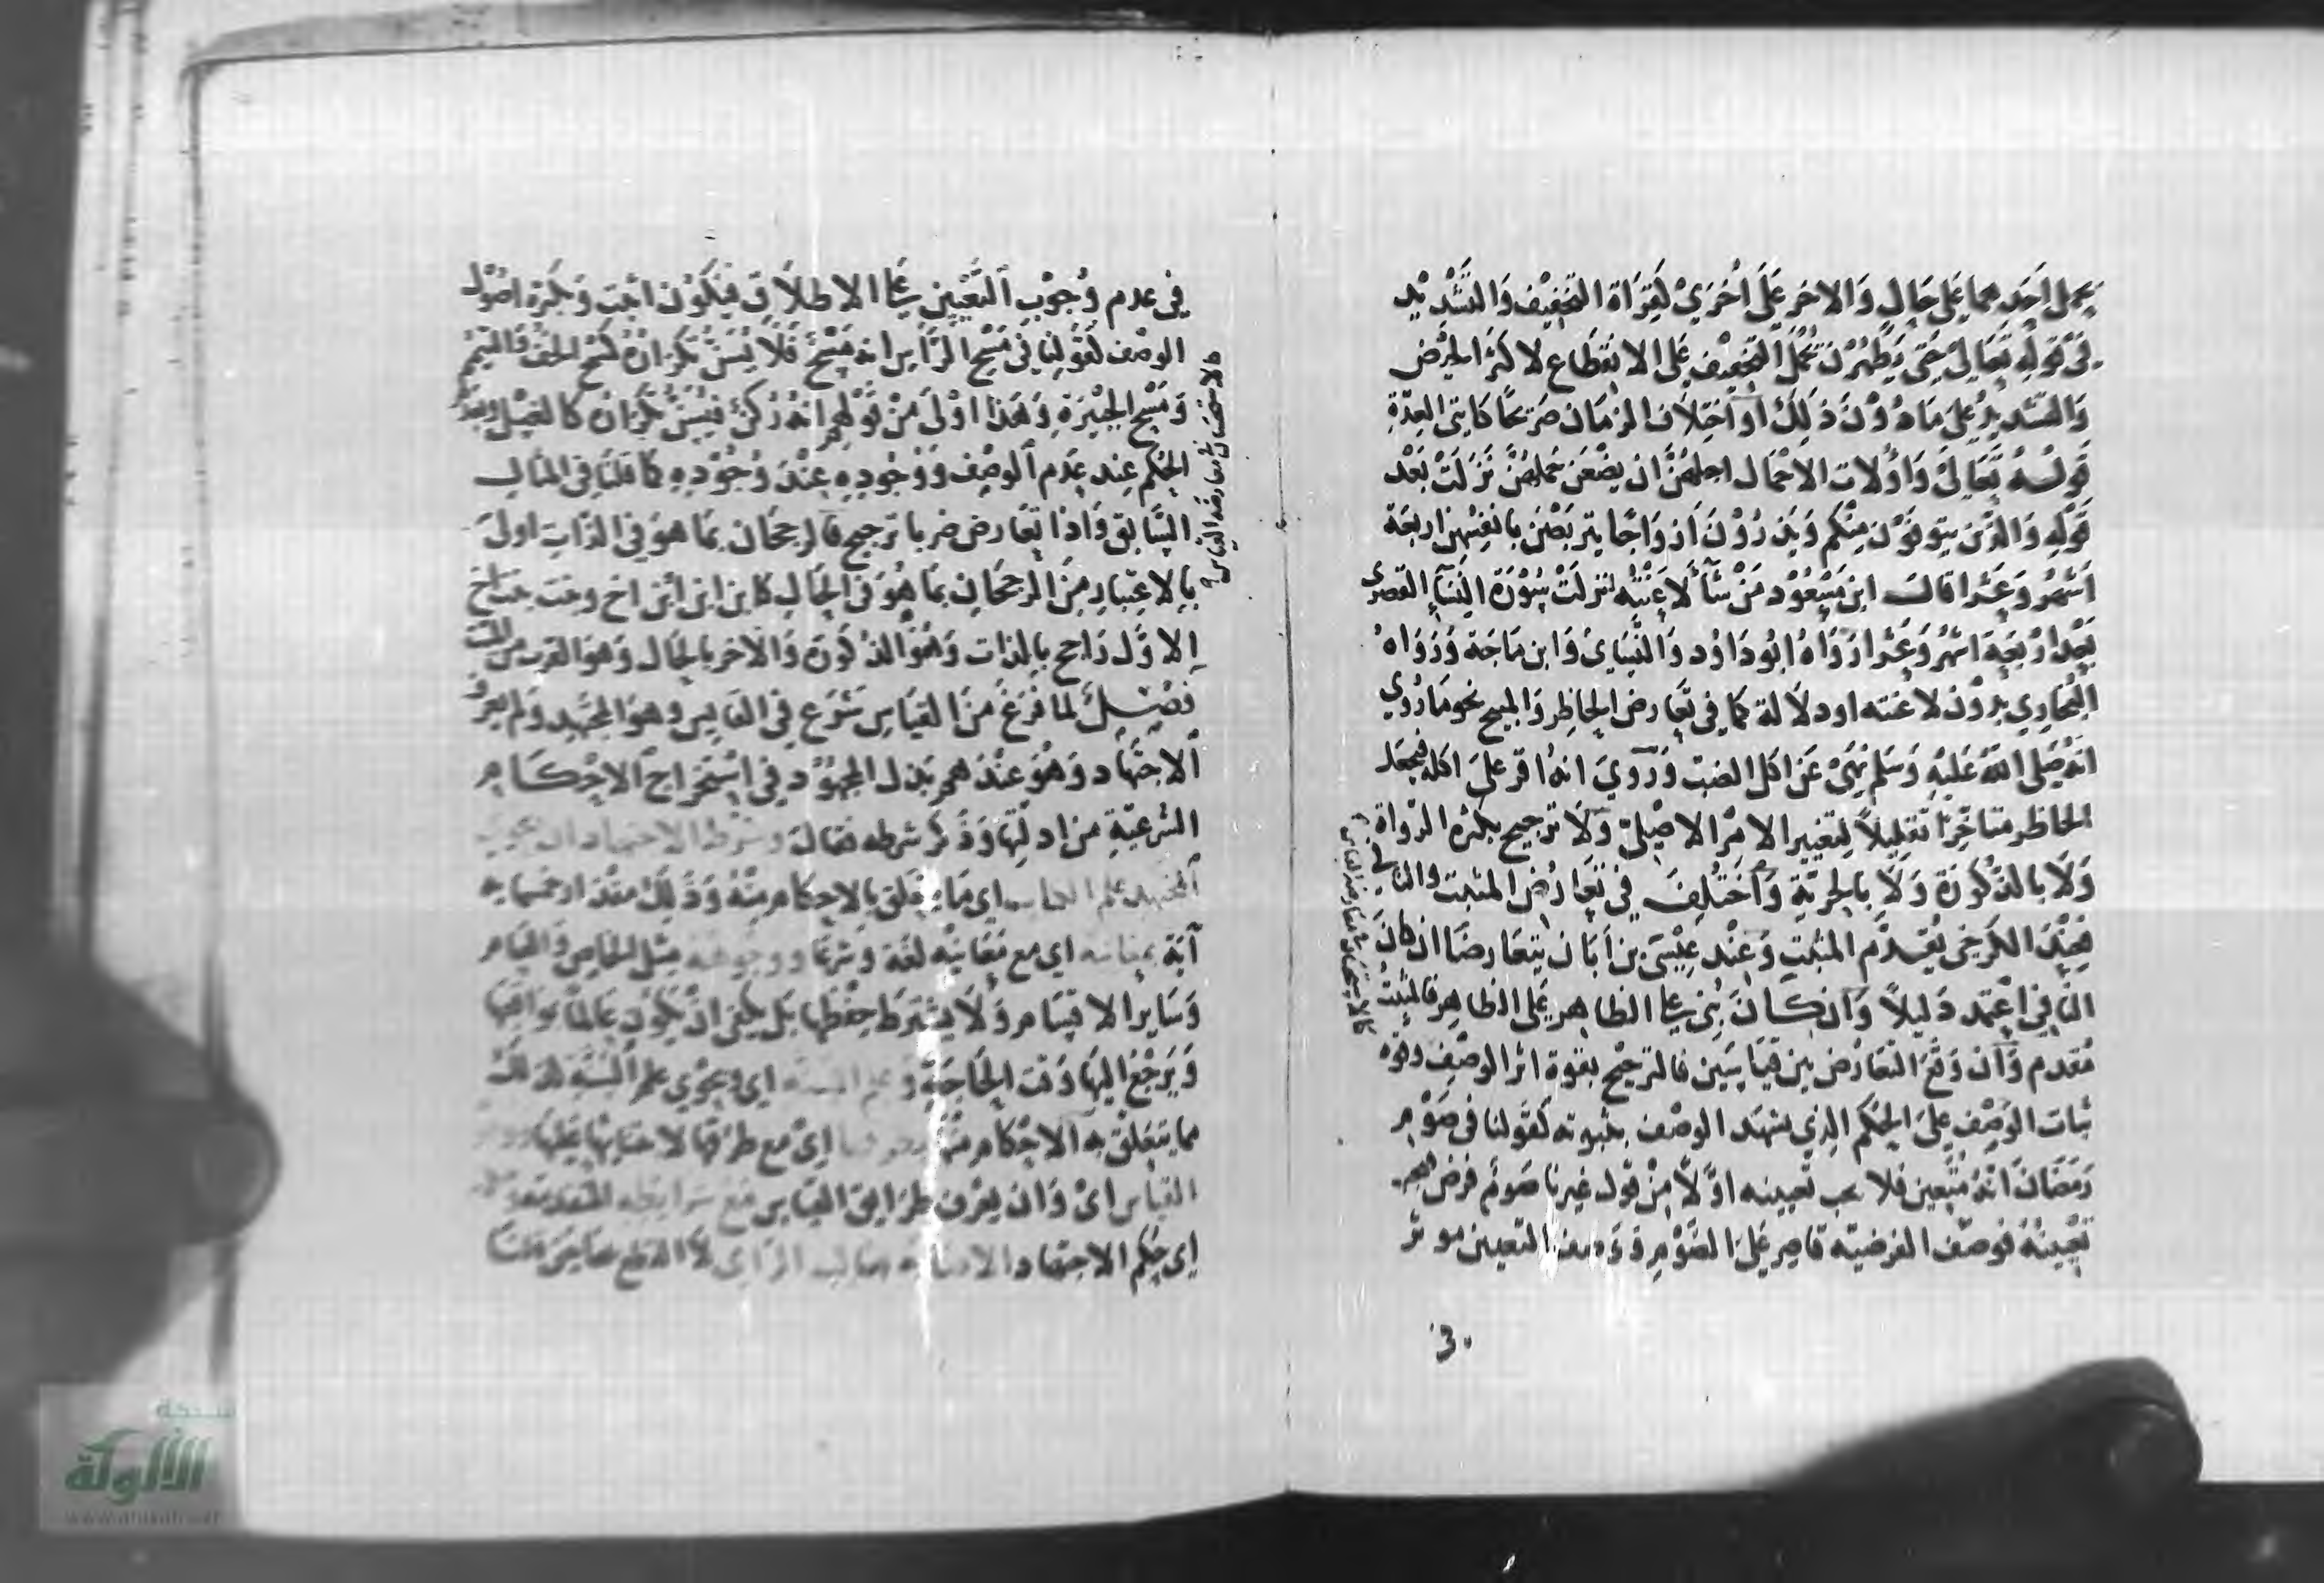 يحمل احدهما على حال والاخر على اخرى كقراة التخفيف والتشديد
في قوله تعالى حتى يطهرن تحمل التخفيف على الانقطاع لاكثر الحيض
والتشديد على ما دون ذلك او اختلاف الزمان صريحا كايتى العدة
قوله تعالى واولات الاحمال اجلهن ان يضعن حملهن نزلت بعد
قوله والذين يتوفون منكم ويذرون ازواجا يتربصن بانفسهن اربعة
اشهر وعشرا قال ابن مسعود من شآ لاعنته لنزلت سورة النسآ القصرى
بعد اربعة اشهر وعشرا رواه ابو داود والنساى وابن ماجة ورواه
البخاري بدون لاعنته او دلالة كما في تعارض الحاظر والمبيح نحو ما روي
انه صلى الله عليه وسلم نهى عن اكل الضب وروي انه اقر على اكله فيجعل
الحاظر متاخرا تقليلا لتغيير الامر الاصلي ولا ترجيح بكثرة الرواة
ولا بالذكورة ولا بالحرية واختلف في تعارض المثبت والنافي
فعند الكرخى يقدم المثبت وعند عيسى بن ابان يتعارضا ان كان
النافي اعتمد دليلا وان كان بنى على الظاهر على الظاهر فالمثبت
مقدم وان وقع التعارض بين قياسين فالترجيح بقوة اثر الوصف وقوة
ثبات الوصف على الحكم الذي يشهد الوصف بثبوته كقولنا في صوم
رمضان انه متعين فلا يجب تعيينه اولا من قول غيرنا صوم فرض
تعيينه فوصف الفرضيه قاصر على الصوم ووصف التعيين موثر
3.
في عدم وجوب التعيين على الاطلاق فيكون اثبت وبكثرة اصول
الوصف كقولنا في مسح الراس انه مسح فلا يسن تكرانه كمسح الخف والتيمم
ومسح الجبيرة وهذا اولى من قولهم انه ركن فيسن تكرانه كالغسل وبعدم
الحكم عند عدم الوصف ووجوده عند وجوده كما قلنا في المثال
السابق واذا تعارض ضربا ترجيح فالرجحان بما هو في الذات اولى
بالاعتبار من الرجحان بما هو في الحال كابن ابن ابن اخ وبنت بنت اخ
الاول راجح بالذات وهو الذكورة والاخر بالحال وهو القرب من الميت
فصل لما فرغ من القياس شرع في القايس وهو المجتهد ولم يعرف
الاجتهاد وهو عندهم بذل المجهود في استخراج الاحكام
الشرعية من ادلتها وذكر شرطه فقال وشرط الاجتهاد ان يحوى
المجتهد علم الكتاب اى ما يتعلق بالاحكام منه وذلك مقدار خمسماية
آية بمعانيه اي مع معانيه لغة وشرعا ووجوهه مثل الخاص والعام
وساير الاقسام ولا يشترط حفظها بل يكفى ان يكون عالما بمواقعها
ويرجع اليها وقت الحاجة وعلم السنة اي ويحوي علم السنة كذلك
مما يتعلق به الاحكام منها بطرقها اى مع طرقها لاحتياجها
القياس اى وان يعرف طرايق القياس مع شرايطه
اى حكم الاجتهاد الاصابة بغالب الراى لا القطع